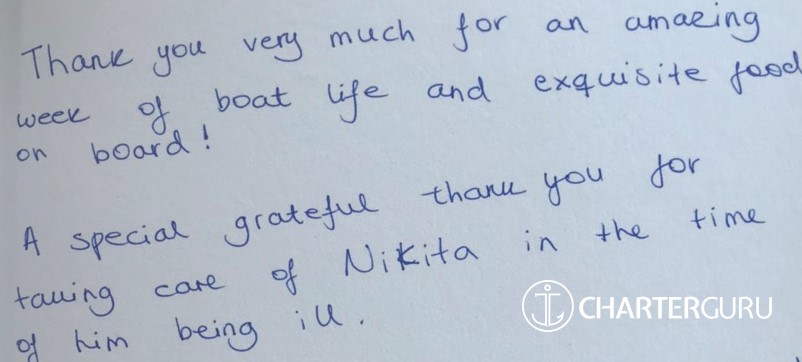 Thank you very much for an amazing
week of boat life and exquisite food
on board!
A special grateful thank you for
taking care of Nikita in the time
of him being ill.
CHARTERGURU